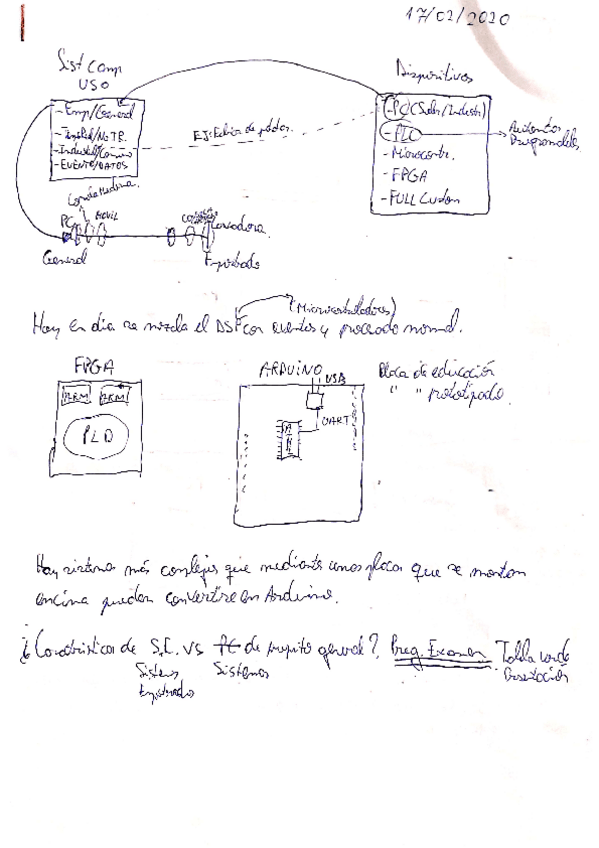 17/02/2020
Sist Comp
USO
- Emp/General
- Industrial/Consumo
- EVENTOS/DATOS
Dispositivos
- PC (Sobr/Industr)
- PLC
- Microcontr.
- FPGA
- FULL Custom
Autómatas
Programables
EJ: Fabrica de
PC
MOVIL
Lavadora
General
Empotrado
(Microcontroladores)
Hoy en dia se mezcla el DSP con eventos y procesado normal.
FPGA
ARM
ARM
PLD
ARDUINO
USB
UART
Placa de educación
" " prototipado.
Hay sistemas más complejos que mediante unas placas que se montan
encima pueden convertirse en Arduino.
¿Características de S.E. VS PC de proposito general?. Preg. Examen Tabla verde
Sistemas Sistemas Presentación